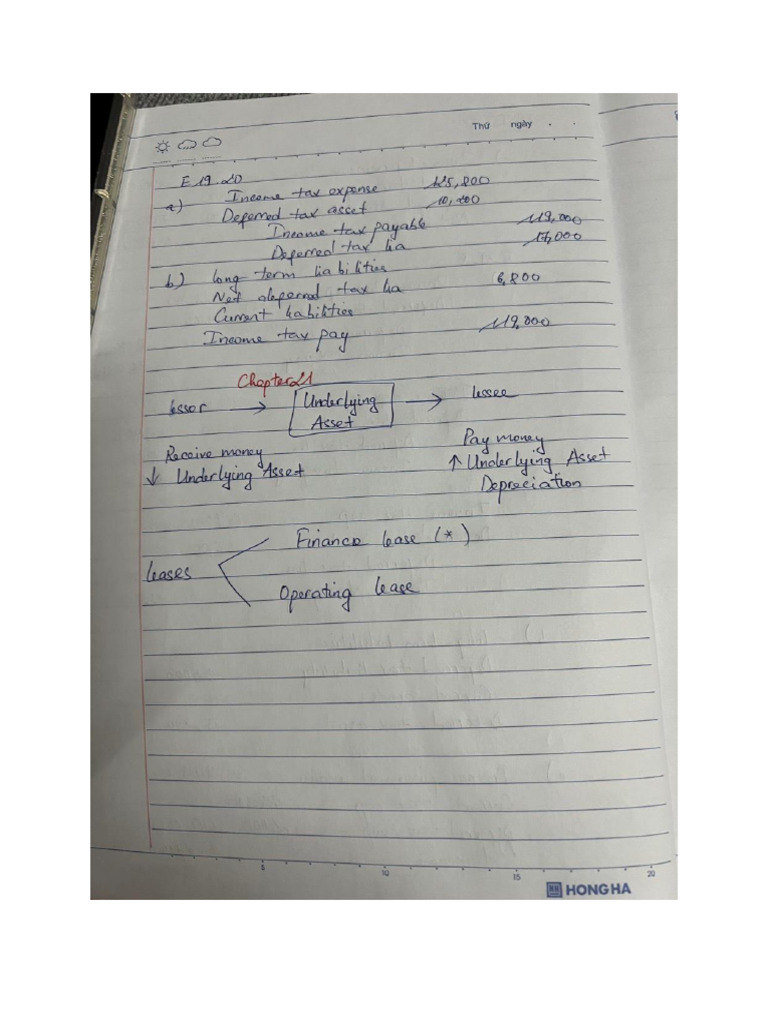 Thứ ngày . .
E 19.20
a) Income tax expense 125,800
Deferred tax asset 10,200
Income tax payable 119,000
Deferred tax lia 17,000
b) Long term liabilities
Net deferred tax lia 6,800
Current liabilities
Income tax pay 119,000
Chapter 21
lessor → Underlying Asset → lessee
Receive money
↓ Underlying Asset
Pay money
↑ Underlying Asset
Depreciation
leases
Finance lease (*)
Operating lease
5 10 15 20
HONG HA